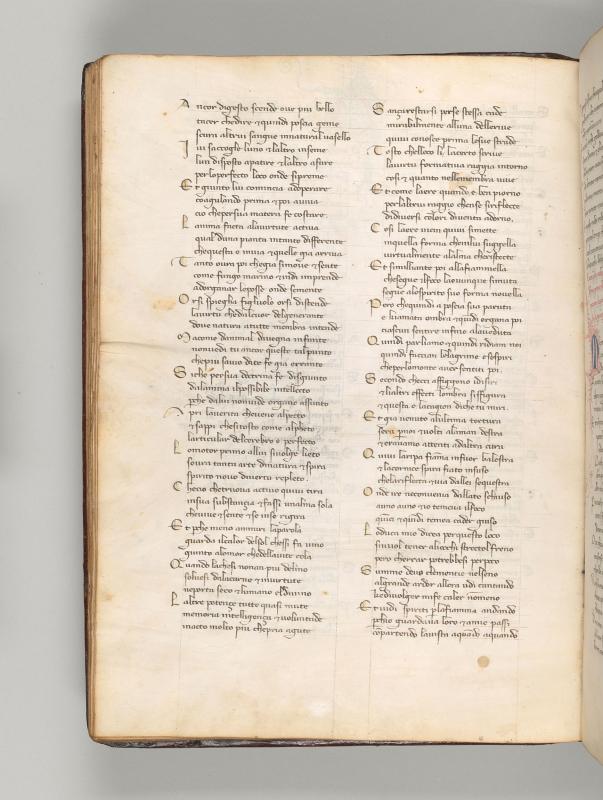 Ancor digesto scende oue piu bello
tacer che dire & quindi poscia geme
soura altrui sangue innatural uasello
Iui sacrogle luno & laltro inseme
lun disposto apatire & laltro afare
per loperfecto loco onde sipreme
Et giunto lui comincia adoperare
coagulando prima & poi auiua
cio cheper sua matera fe costare.
Lanima facta lauirtute actiua
qual duna pianta intanto differente
chequesta e inuia & quelle gia arriua
Tanto oura poi chegia simoue & sente
come fungo marino & indi imprende
adorganar leposse onde semente
Orsi spiegha figliuolo orsi distende
lauirtu chedalcuor delgenerante
doue natura atutte membra intende
Ma como danimal diuegna infante
non uedi tu ancor questo talpunto
chepiu sauio dite fe gia errante
Siche per sua dectrina fe disgiunto
dalanima ilpossibile intellecto
pche dalui nonuide organo assunto
Apri lauerita cheuene alpecto
& sappi chesi tosto come alpheto
larticular delcerebro e perfecto
Lomotor primo allui siuolge lieto
soura tanta arte dinatura & spira
spirito nouo diuertu repleto.
Checio chetruoua actiuo quiui tira
insua substanzia & fassi unalma sola
cheuiue & sente & se inse rigira
Et pche meno ammiri laparola
guarda ilcalor delsol chessi fa uino
giunto alomor chedellauite cola
Quando lachesi nonan piu delino
soluesi dalacarne & inuirtute
neporta seco & lumano eldiuino
Laltre potenze tutte quasi mute
memoria intelligenza & uoluntade
inacto molto piu chepria agute
Sançarestarsi perse stessa cade
mirabilmente alluna dellerive
quiui conosce prima lesue strade
Tosto chelloco li lacerto scriue
lauirtu formatiua raggia intorno
cosi & quanto nellemembra uiue
Et come laere quando e ben piorno
per laltrui raggio chense sirflecte
didiuersi colori diuenta adorno,
Cosi laere uicin quiui simette
inquella forma chenlui suggella
uirtualmente alalma cheristecte
Et simlliante poi allafiammella
chesegue ilfoco lauunque simuta
segue alospirito suo forma nouella
Pero chequindi a poscia sua paruta
e kiamata ombra & quindi organa poi
ciascun sentire infino alaueduta
Quindi parliamo & quindi ridiam noi
quindi facciam lelagrime esospiri
cheperlomonte auer sentiti poi.
Secondo checci affiggono idisiri
& lialtri affecti lombra sisfigura
& questa e lacagion diche tu miri.
Et gia uenuto alultima tortura
sera p noi & uolti alaman destra
& erauamo attenti adaltra cura
Quiui laripa fiama infuor balestra
& lacornice spira fiato insuso
chelariflecte & uia dallei sequestra
Onde ire neconuenia dallato schiuso
auno auno & io temeua ilfoco
quici & quindi temea cader giuso
Loduca mio dicea per questo loco
siuuol tener aliocchi strectol freno
pero cherrar potrebbesi perpoco
Summe deus clementie nelseno
algrande ardor allora udi cantando
ke diuolger mife caler nomeno
Et uidi spiriti plafiamma andando
pchio guardaua loro & amie passi
cōpartendo lauista aquādo aquando